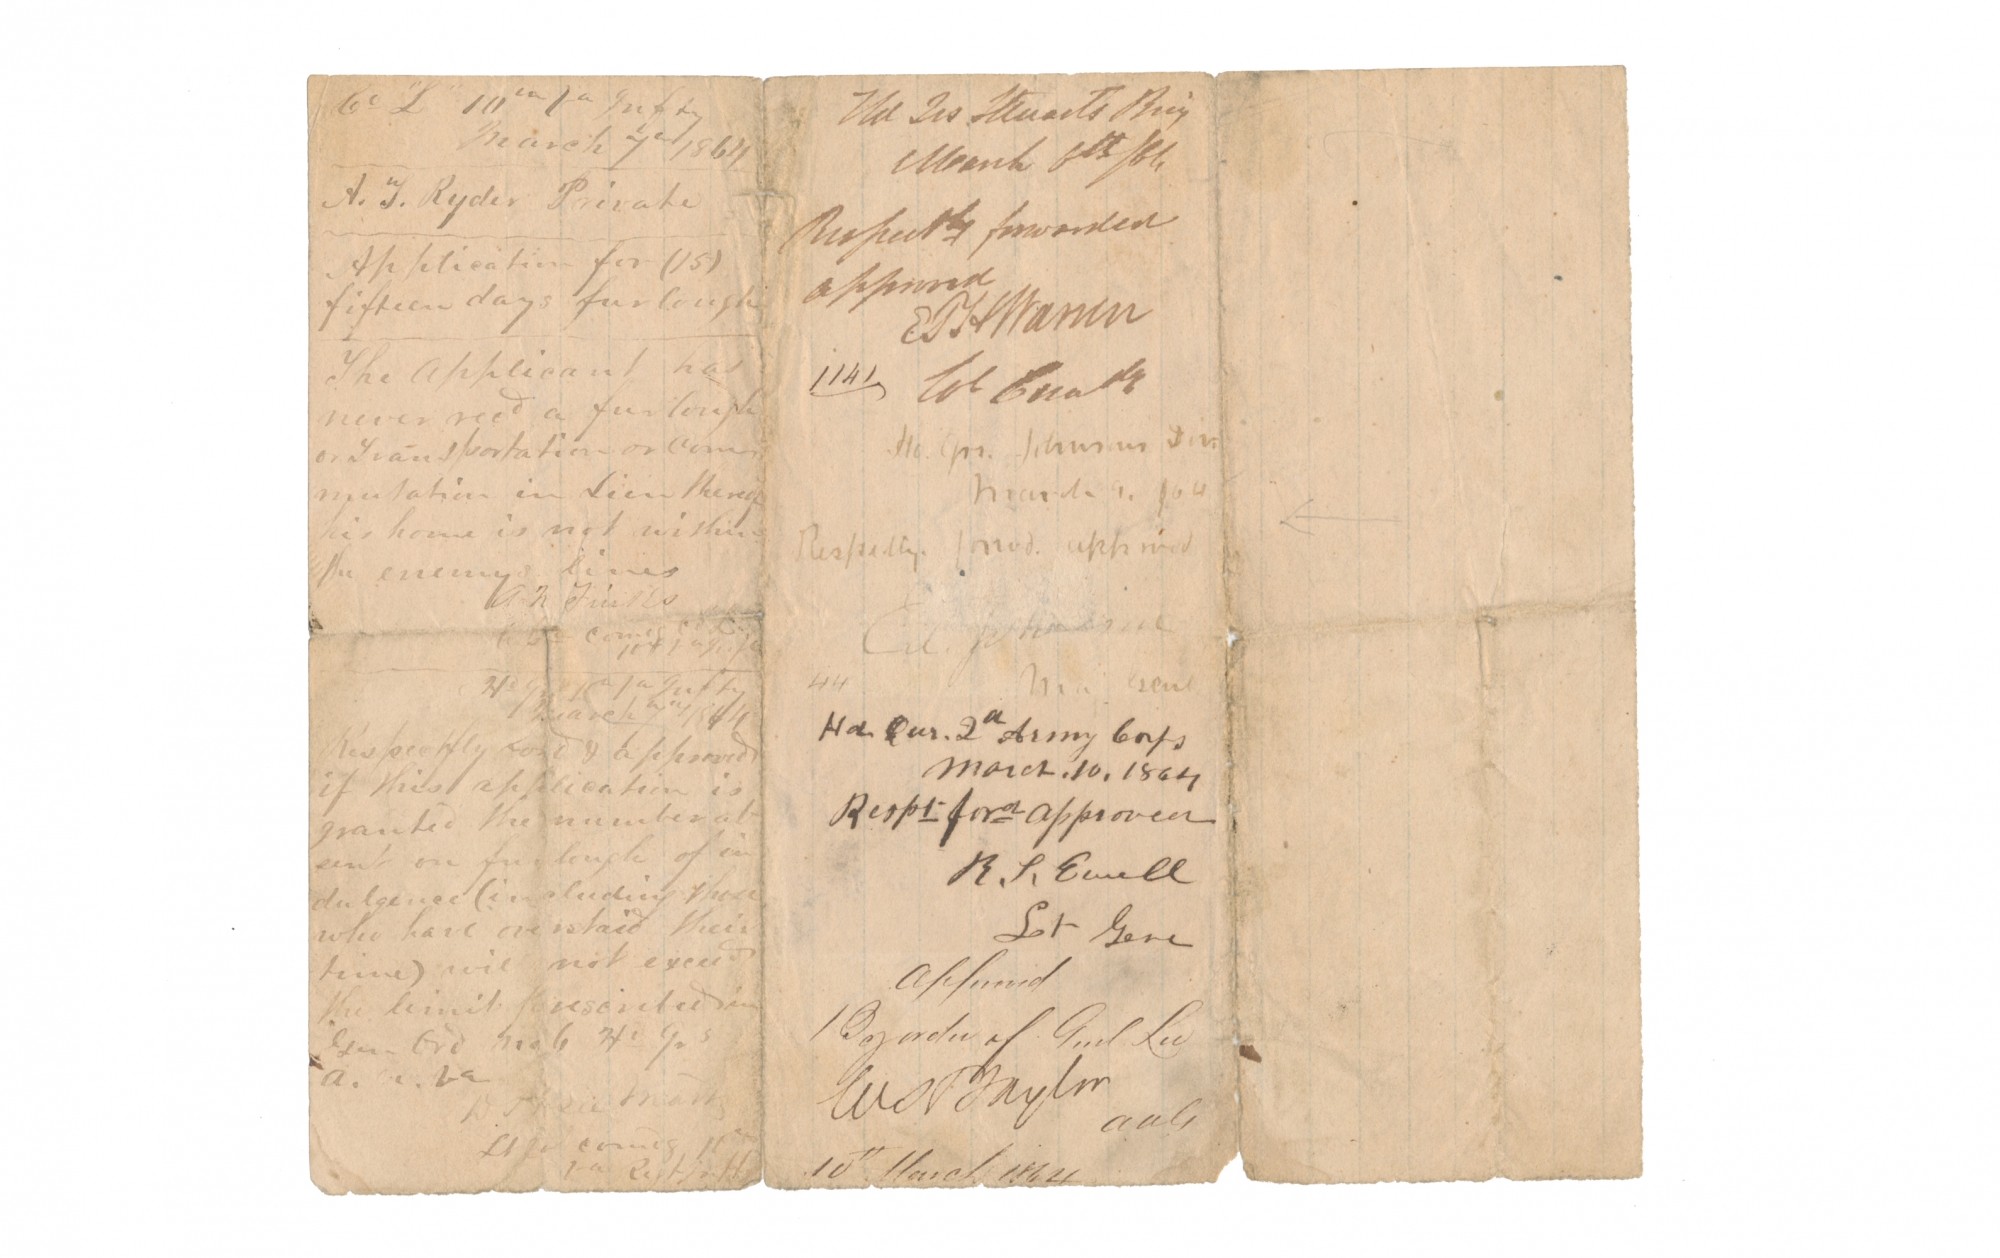 Co "L" 10th Va Infty
March 7th 1864
A. J. Ryder Private
Application for (15)
fifteen days furlough
The Applicant has
never recd a furlough
or Transportation or Com-
mutation in Lieu thereof
his home is not within
the enemys lines
comdg Co
10th Va Infty
Hd Qrs 10th Va Infty
March 7th 1864
Respectfly ford & approved
if this application is
granted the number ab-
sent on furlough of in
dulgence (including those
who have overstaid their
time) will not exceed
the limit prescribed in
Gen Ord No 6 Hd Qrs
A. N. Va
Lt Col comdg 10th
Va Regt Infty
Hd Qrs Steuarts Brig
March 8th /64
Respectfly forwarded
approved
E T H Warren
1141
Col Comdg
Hd. Qrs. Johnsons Div.
March 9. /64
Respectly. forwd. approved
Ed. Johnson
44
Maj Genl
Hd. Qur. 2d Army Corps
March. 10. 1864
Respt ford Approved
R. S. Ewell
Lt Gene
Approved
By order of Genl Lee
W H Taylor
AAG
10th March 1864